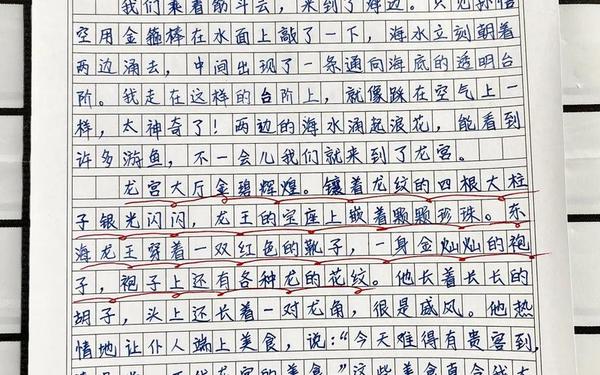 我们乘着筋斗云，来到了海边。只见孙悟
空用金箍棒在水面上敲了一下，海水立刻朝着
两边涌去，中间出现了一条通向海底的透明台
阶。我走在这样的台阶上，就像踩在空气上一
样，太神奇了！两边的海水涌起浪花，能看到
许多游鱼，不一会儿我们就来到了龙宫。
龙宫大厅金碧辉煌。镶着龙纹的四根大柱
子银光闪闪，龙王的宝座上嵌着颗颗珍珠。东
海龙王穿着一双红色的靴子，一身金灿灿的袍
子，袍子上还有各种龙的花纹。他长着长长的
胡子，头上还长着一对龙角，很是威风。他热
情地让仆人端上美食，说：“今天难得有贵客到，
龙宫的美食”这些美食真令我大